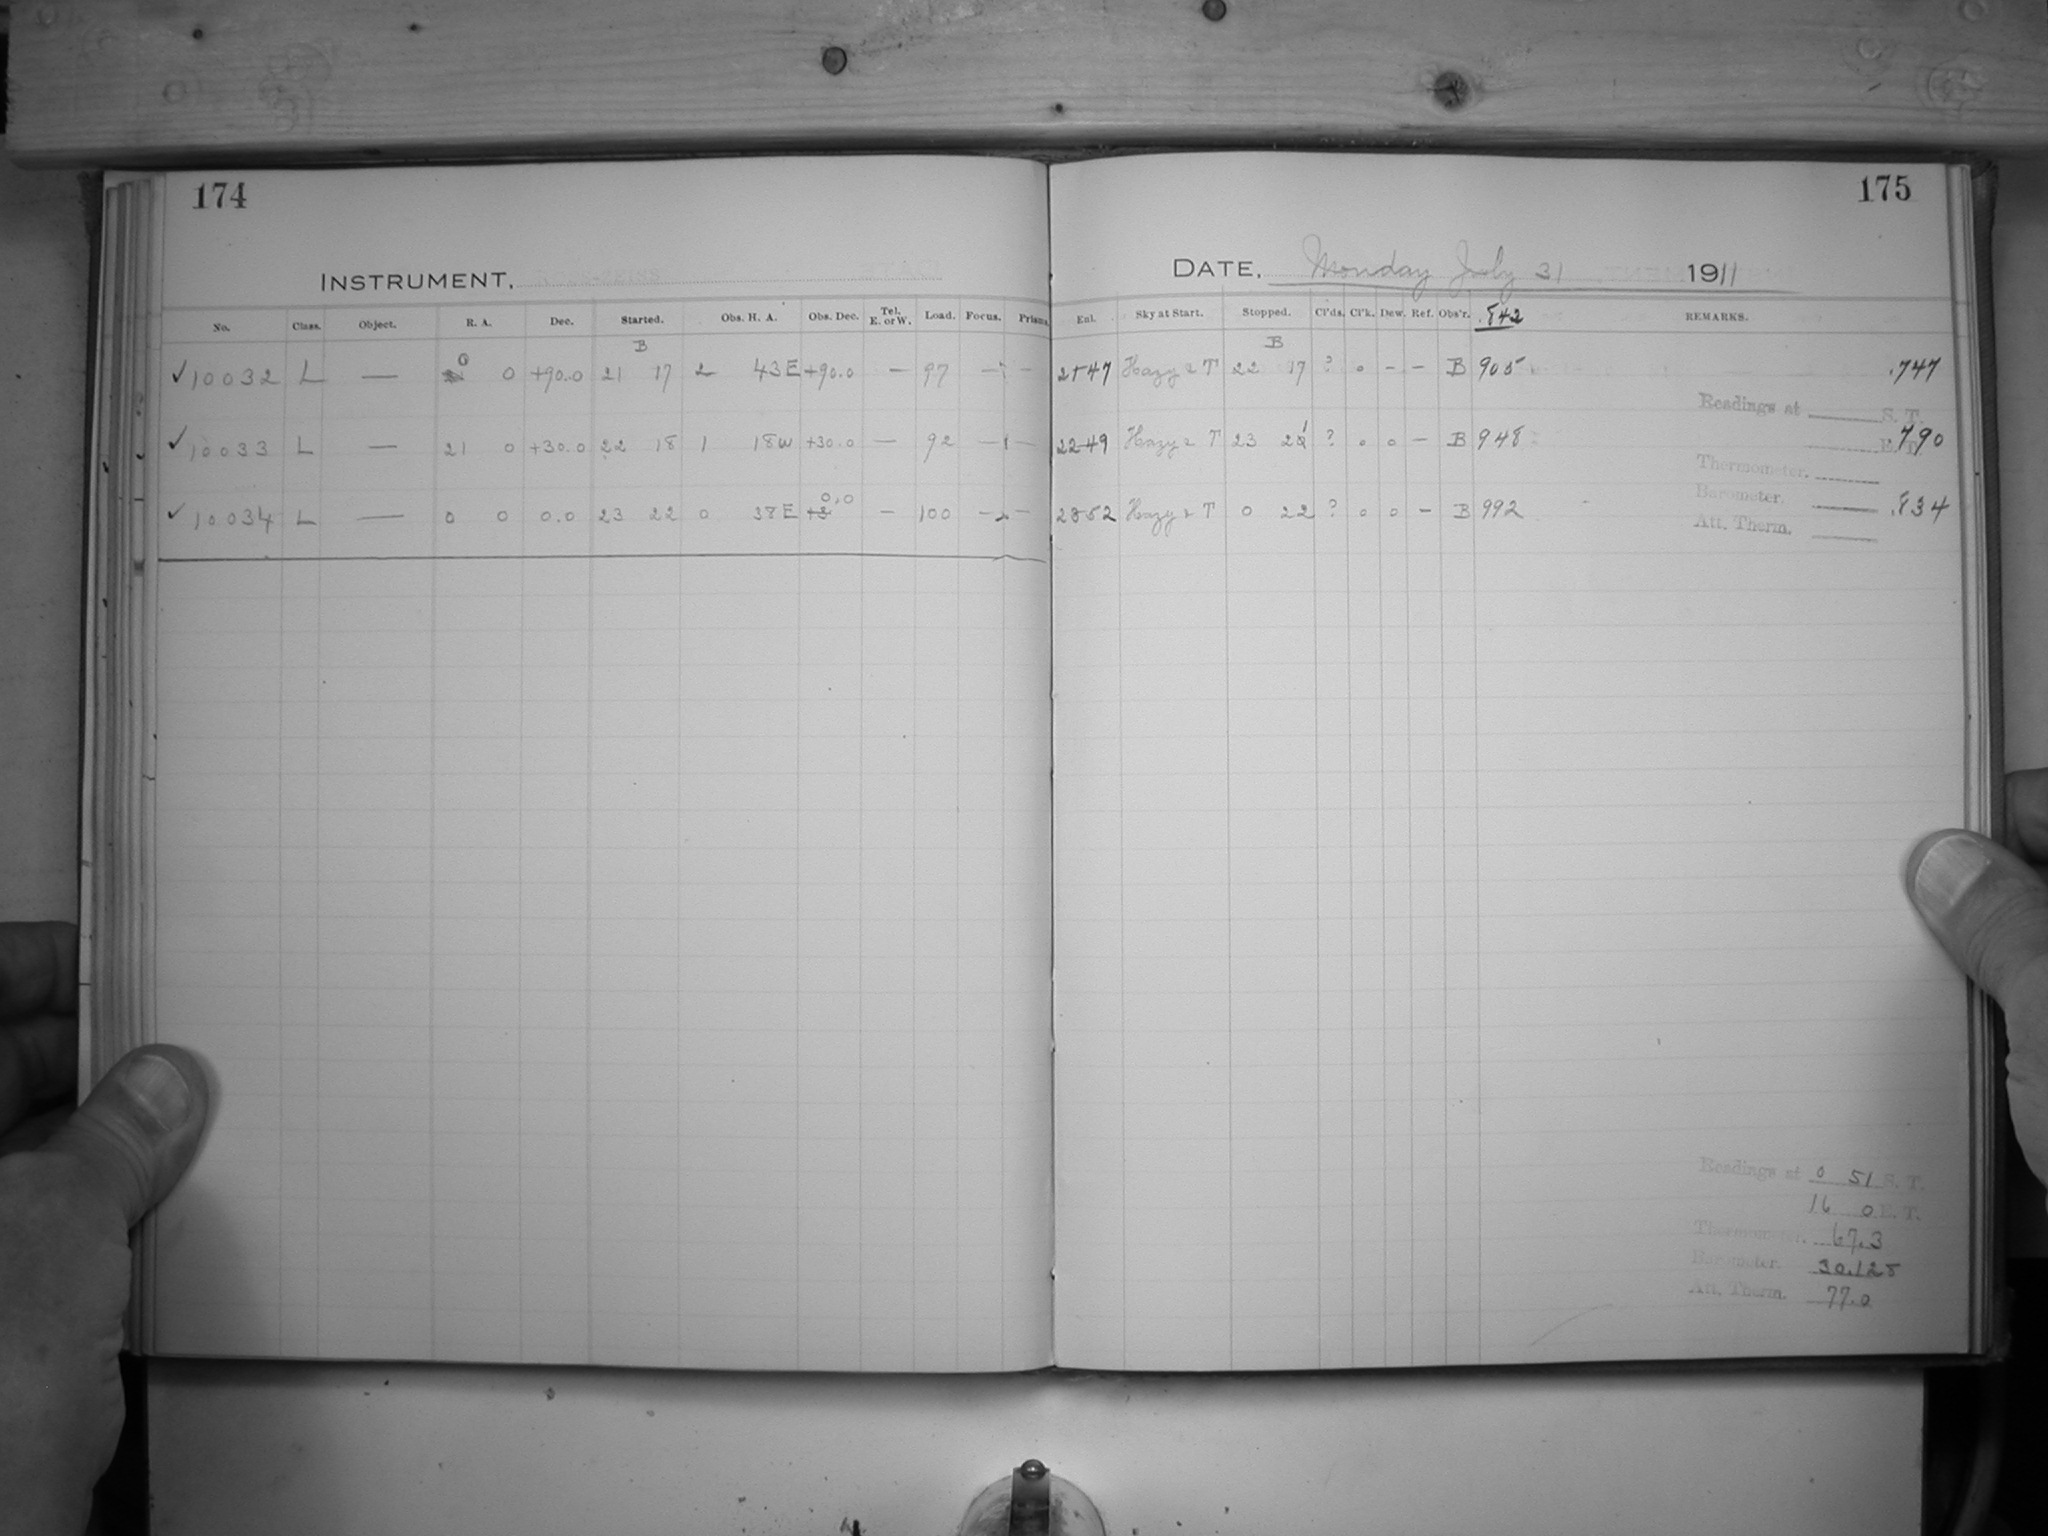 174
INSTRUMENT,
No. Class. Object. R. A. Dec. Started. Obs. H. A. Obs. Dec. Tel. E. or W. Load. Focus. Prisms.
B
✓ 10032 L — 0 0 +90.0 21 17 2 43 E +90.0 — 97 — —
✓ 10033 L — 21 0 +30.0 22 18 1 18 W +30.0 — 92 — —
✓ 10034 L — 0 0 0.0 23 22 0 38 E 0.0 — 100 — —
175
DATE, Monday July 31 1911
Enl. Sky at Start. Stopped. Cl'ds. Cl'k. Dew. Ref. Obs'r. .842 REMARKS.
B
2147 Hazy & T 22 17 ? 0 – – B 905 .747
Readings at S. T.
2249 Hazy & T 23 21 ? 0 0 – B 948 .790
E. T.
Thermometer.
2352 Hazy & T 0 22 ? 0 0 – B 992 .834
Barometer.
Att. Therm.
Readings at 0 51 S. T.
16 0 E. T.
Thermometer. 67.3
Barometer. 30.125
Att. Therm. 77.0